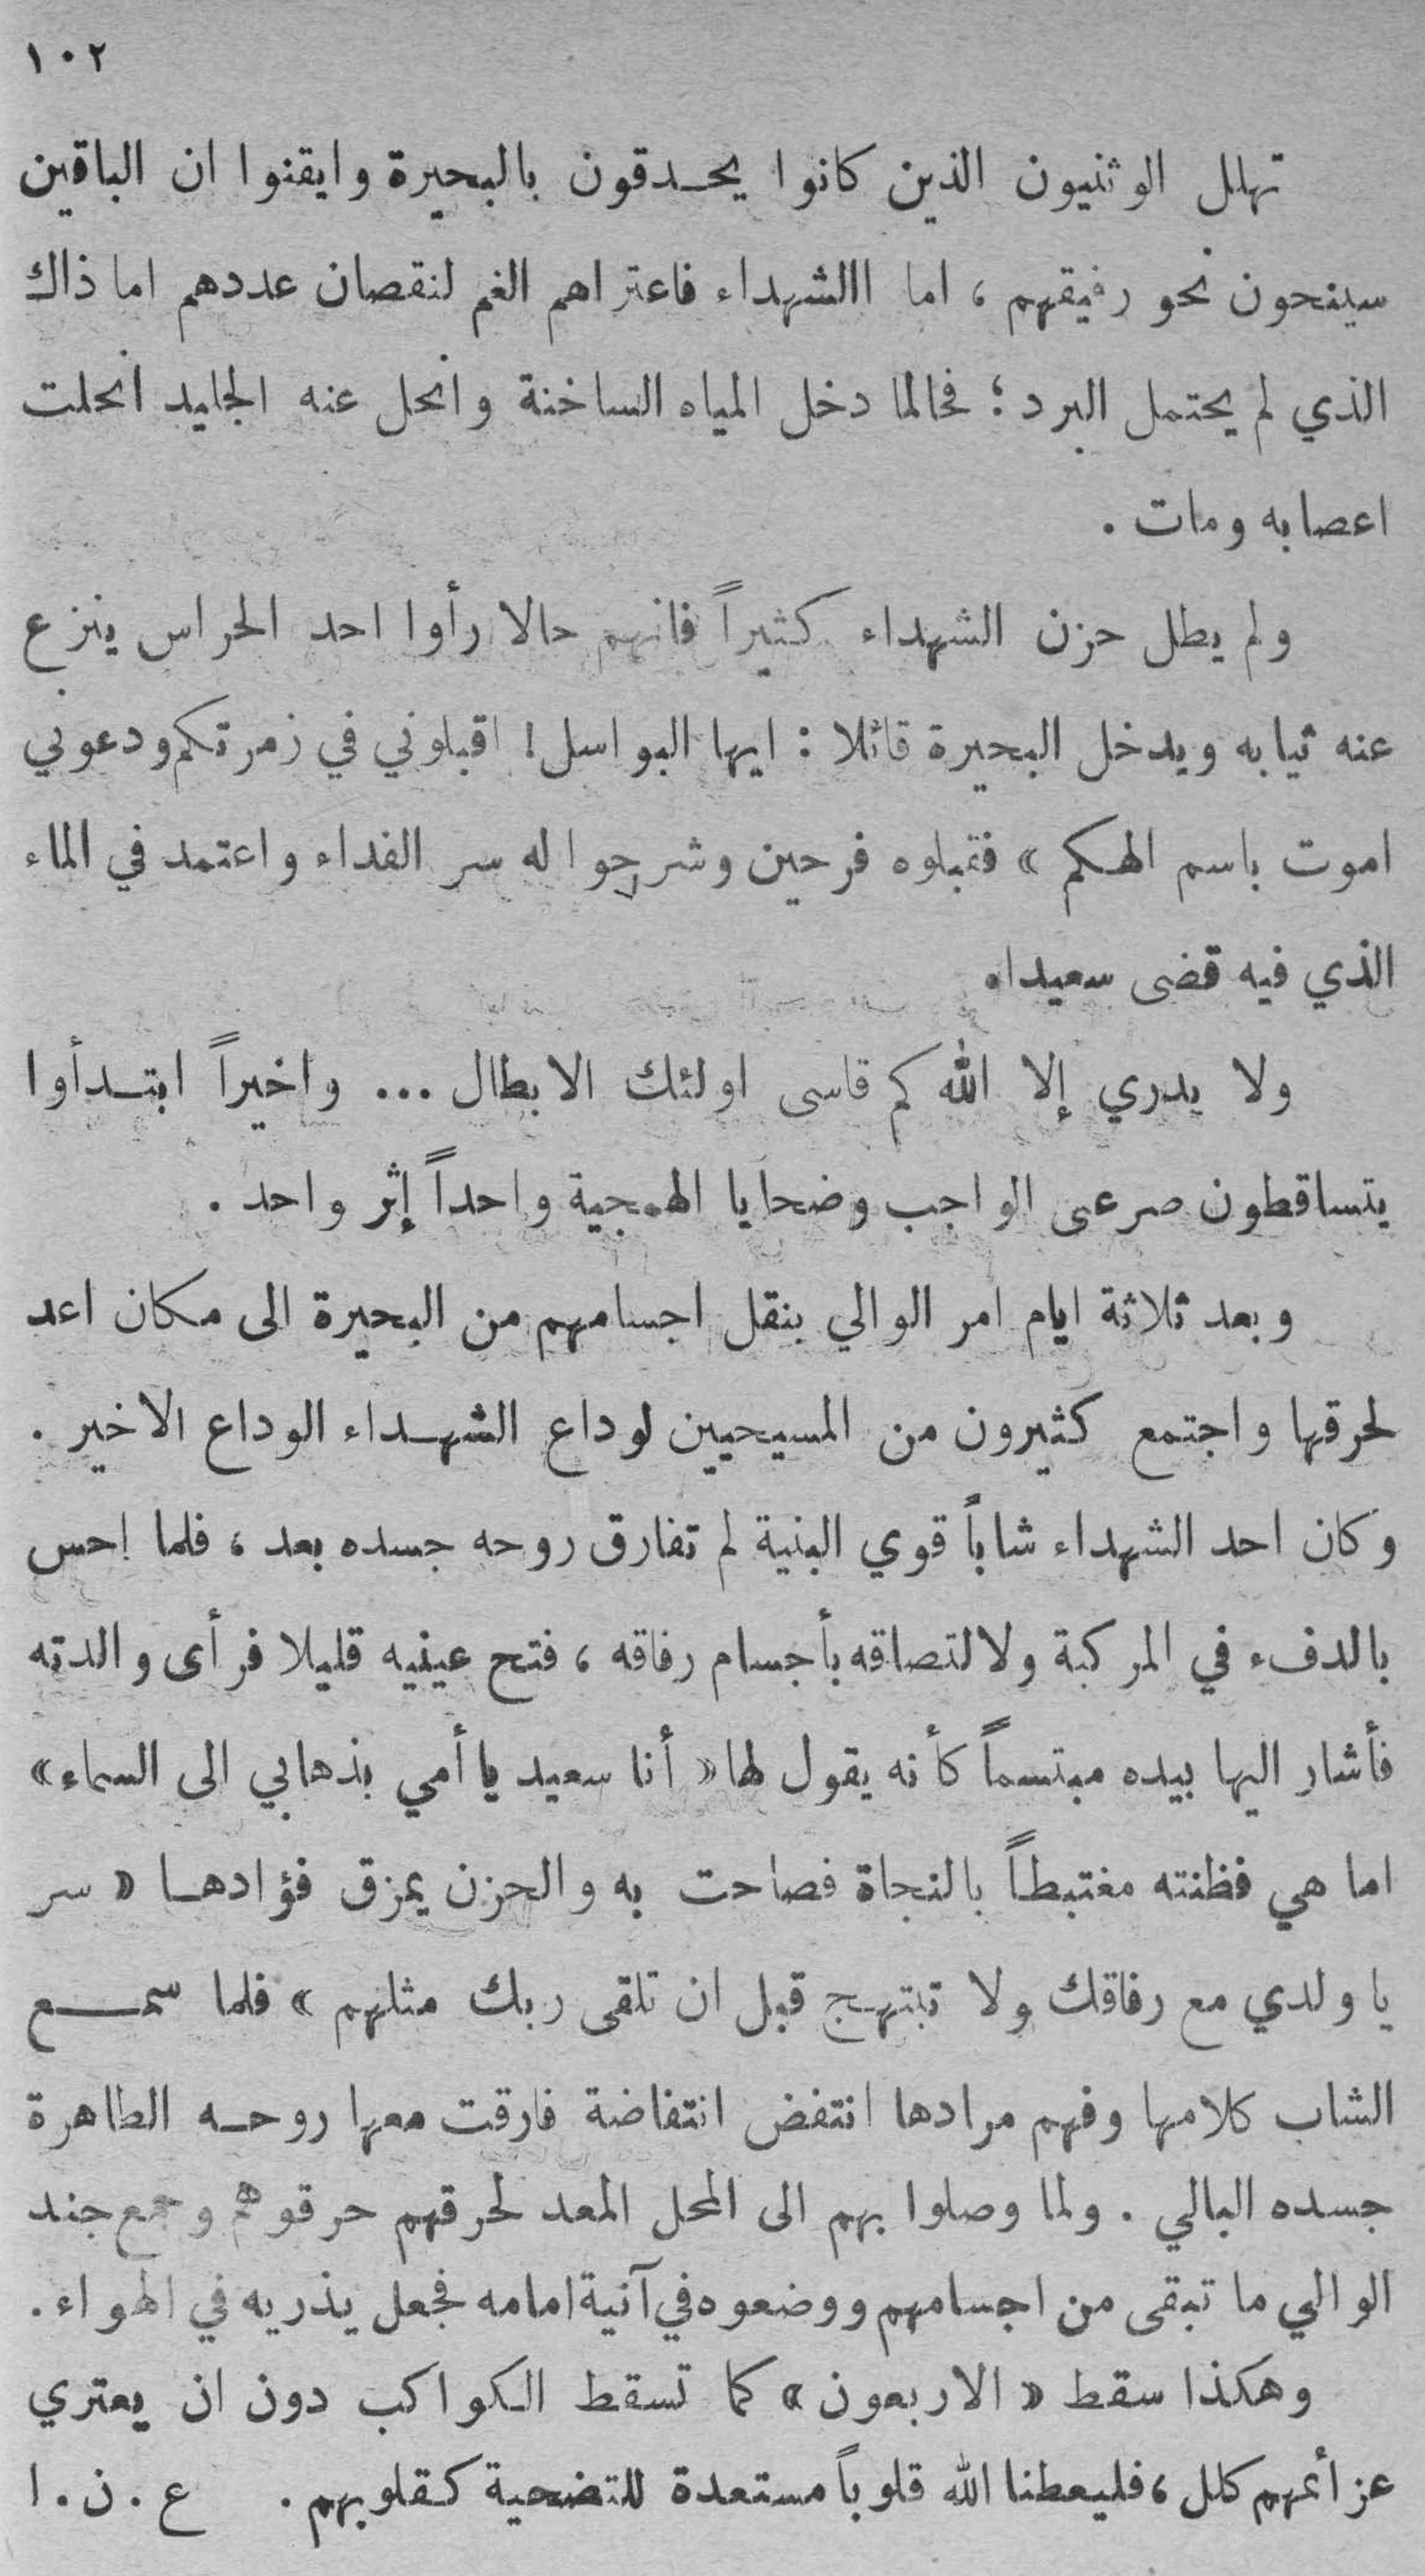 ١٠٢
تهلل الوثنيون الذين كانوا يحدقون بالبحيرة وايقنوا ان الباقين
سينحون نحو رفيقهم ، اما االشهداء فاعتراهم الغم لنقصان عددهم اما ذاك
الذي لم يحتمل البرد ؛ فحالما دخل المياه الساخنة وانحل عنه الجليد انحلت
اعصابه ومات .
ولم يطل حزن الشهداء كثيراً فانهم حالا رأوا احد الحراس ينزع
عنه ثيابه ويدخل البحيرة قائلا : ايها البواسل ! اقبلوني في زمرتكم ودعوني
اموت باسم الهكم » فقبلوه فرحين وشرحوا له سر الفداء واعتمد في الماء
الذي فيه قضى سعيدا.
ولا يدري إلا الله كم قاسى اولئك الابطال ... واخيراً ابتدأوا
يتساقطون صرعى الواجب وضحايا الهمجية واحداً إثر واحد .
وبعد ثلاثة ايام امر الوالي بنقل اجسامهم من البحيرة الى مكان اعد
لحرقها واجتمع كثيرون من المسيحيين لوداع الشهداء الوداع الاخير .
وكان احد الشهداء شاباً قوي البنية لم تفارق روحه جسده بعد ، فلما احس
بالدفء في المركبة ولالتصاقه بأجسام رفاقه ، فتح عينيه قليلا فرأى والدته
فأشار اليها بيده مبتسماً كأنه يقول لها « أنا سعيد يا أمي بذهابي الى السماء »
اما هي فظنته مغتبطاً بالنجاة فصاحت به والحزن يمزق فؤادها « سر
يا ولدي مع رفاقك ولا تبتهج قبل ان تلقى ربك مثلهم » فلما سمع
الشاب كلامها وفهم مرادها انتفض انتفاضة فارقت معها روحه الطاهرة
جسده البالي . ولما وصلوا بهم الى المحل المعد لحرقهم حرقوهم وجمع جند
الوالي ما تبقى من اجسامهم ووضعوه في آنية امامه فجعل يذريه في الهواء .
وهكذا سقط « الاربعون » كما تسقط الكواكب دون ان يعتري
عزائمهم كلل ، فليعطنا الله قلوباً مستعدة للتضحية كقلوبهم . ع . ن . ا